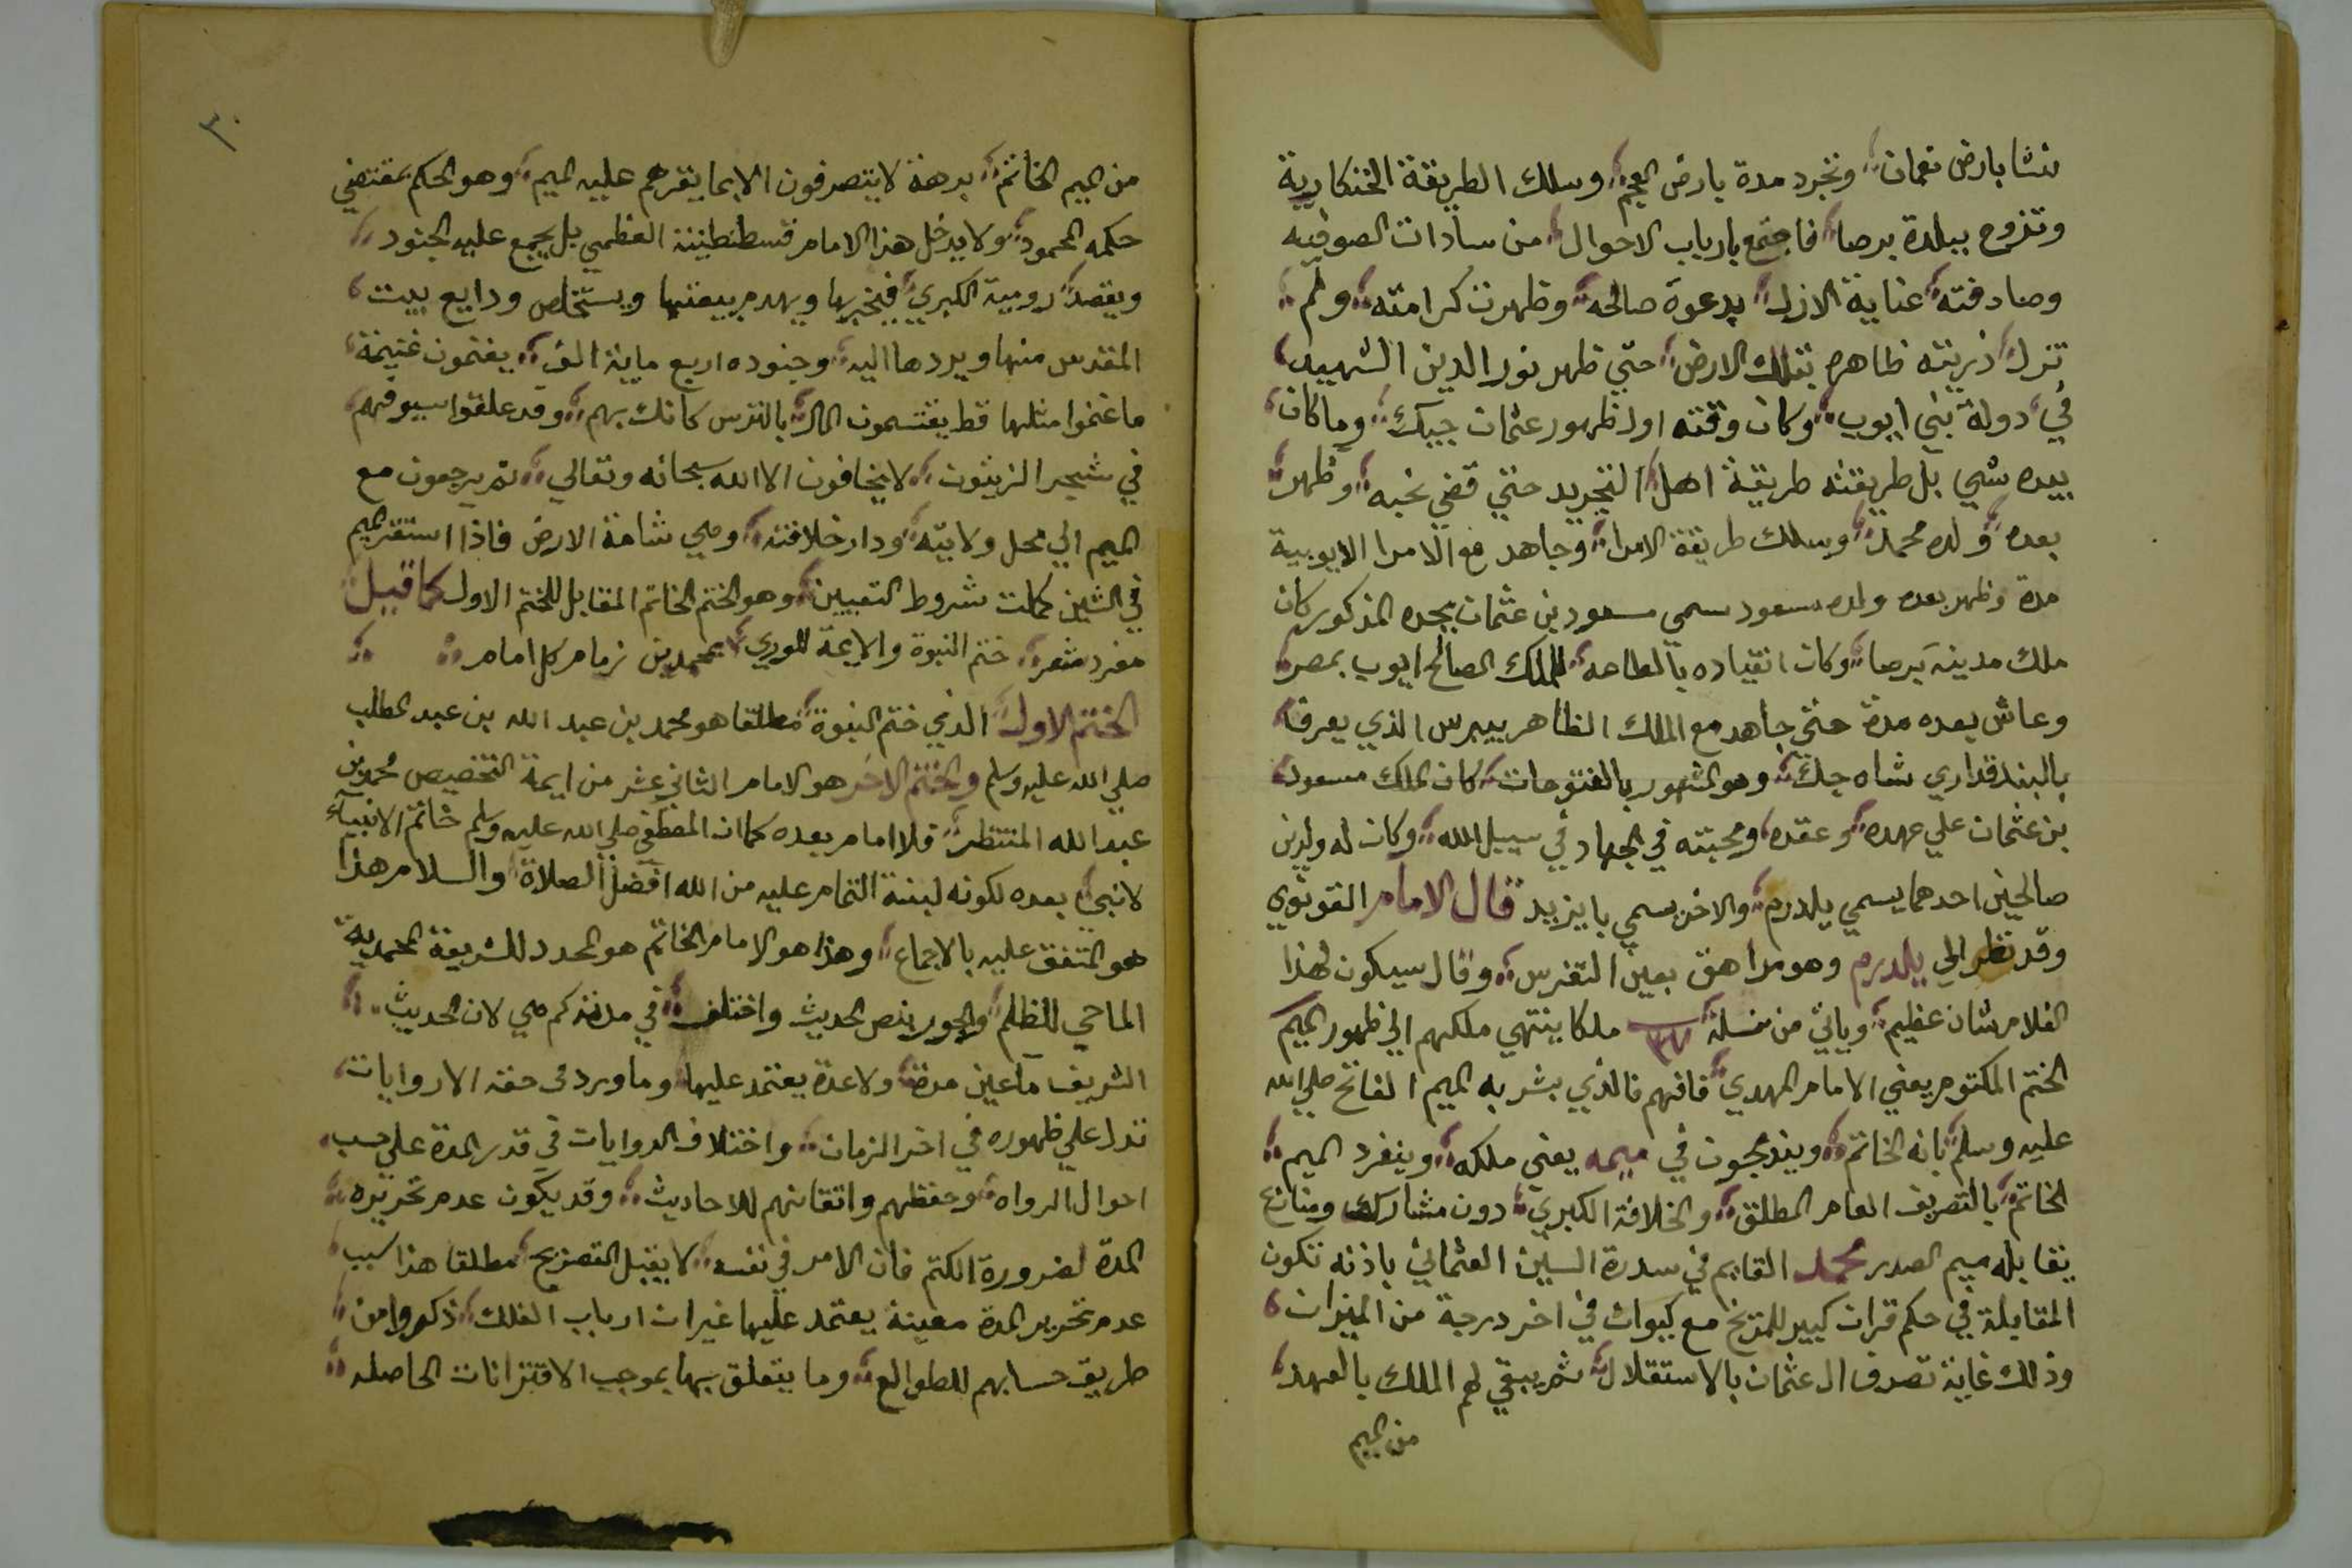 نشا بارض نعمان وتجرد مدة بارض العجم وسلك الطريقة الخنكارية
وتزوج ببلدة برصا فاجتمع بارباب الاحوال من سادات الصوفيه
وصادفته عناية الازل بدعوة صالحه وظهرت كرامته ولم
تزل ذريته ظاهره بتلك الارض حتي ظهر نور الدين الشهيد
في دولة بني ايوب وكان وقته اول ظهور عثمان جيبك وما كان
بيده شي بل طريقته طريقة اهل التجريد حتي قضي نحبه وظهر
بعده ولده محمد وسلك طريقة الامرا وجاهد مع الامرا الايوبية
مدة وظهر بعده ولده مسعود سمي مسعود بن عثمان بجده المذكور كان
ملك مدينة برصا وكان انقياده بالطاعه للملك الصالح ايوب بمصر
وعاش بعده مدة حتي جاهد مع الملك الظاهر بيبرس الذي يعرف
بالبندقداري شاه جك وهو المشهور بالفتوحات كان الملك مسعود
بن عثمان علي عهده وعقده ومحبته في الجهاد في سبيل الله وكان له ولدين
صالحين احدهما يسمي يلدرم والاخر يسمي بايزيد قال الامام القونوي
وقد نظر الي يلدرم وهو مراهق بعين التفرس وقال سيكون لهذا
الغلام شان عظيم وياتي من نسله ٣٧ ملكا ينتهي ملكهم الي ظهور الميم
الختم المكتوم يعني الامام المهدي فافهم فالذي بشر به الميم الفاتح صلي الله
عليه وسلم بانه الخاتم ويندمجون في ميمه يعني ملكه وينفرد الميم
الخاتم بالتصريف العام المطلق والخلافة الكبري دون مشارك ومنازع
يقابله ميم الصدر محمد القايم في سدرة السين العثماني باذنه تكون
المقابلة في حكم قران كبير للمريخ مع كيوان في اخر درجة من الميزان
وذلك غاية تصرف ال عثمان بالاستقلال ثم يبقي لهم الملك بالعهد
من الميم
٣٠
من الميم الخاتم برهة لا يتصرفون الا بما يقرهم عليه الميم وهو الحكم بمقتضي
حكمه المحمود ولا يدخل هذا الامام قسطنطينة العظمي بل يجمع عليه الجنود
ويقصد رومية الكبري فيخربها ويهدم بيعتها ويستخلص ودايع بيت
المقدس منها ويردها اليه وجنوده اربع ماية الف يغتمون غنيمة
ما غنموا مثلها قط يقتسمون المال بالترس كانك بهم وقد علقوا سيوفهم
في شجر الزيتون لا يخافون الا الله سبحانه وتعالي ثم يرجعون مع
الميم الي محل ولايته ودار خلافته وهي شامة الارض فاذا استقر الميم
في الشين كملت شروط التعيين وهو الختم الخاتم المقابل للختم الاول كما قيل
مفرد شعر ختم النبوة والايمة للوري بمحمدين زمام كل امام
الختم الاول الذي ختم النبوة مطلقا هو محمد بن عبد الله بن عبد المطلب
صلي الله عليه وسلم والختم الاخر هو الامام الثاني عشر من ايمة التخصيص محمد بن
عبد الله المنتظر فلا امام بعده كما ان المصطفي صلي الله عليه وسلم خاتم الانبيآء
لا نبي بعده لكونه لبنة التمام عليه من الله افضل الصلاة والسلام هذا
هو المتفق عليه بالاجماع وهذا هو الامام الخاتم هو المحدد للشريعة المحمدية
الماحي للظلم والجور بنص الحديث واختلف في مدته كم هي لان الحديث
الشريف ما عين مدة ولا عدة يعتمد عليها وما ورد في حقه الا روايات
تدل علي ظهوره في اخر الزمان واختلاف الروايات في قدر المدة علي حسب
احوال الرواه وحفظهم واتقانهم للاحاديث وقد يكون عدم تحريره
المدة لضرورة الكتم فان الامر في نفسه لا يقبل التصريح مطلقا هذا سبب
عدم تحرير المدة معينة يعتمد عليها غير ان ارباب الفلك ذكروا من
طريق حسابهم للطوالع وما يتعلق بها بموجب الاقترانات الحاصله